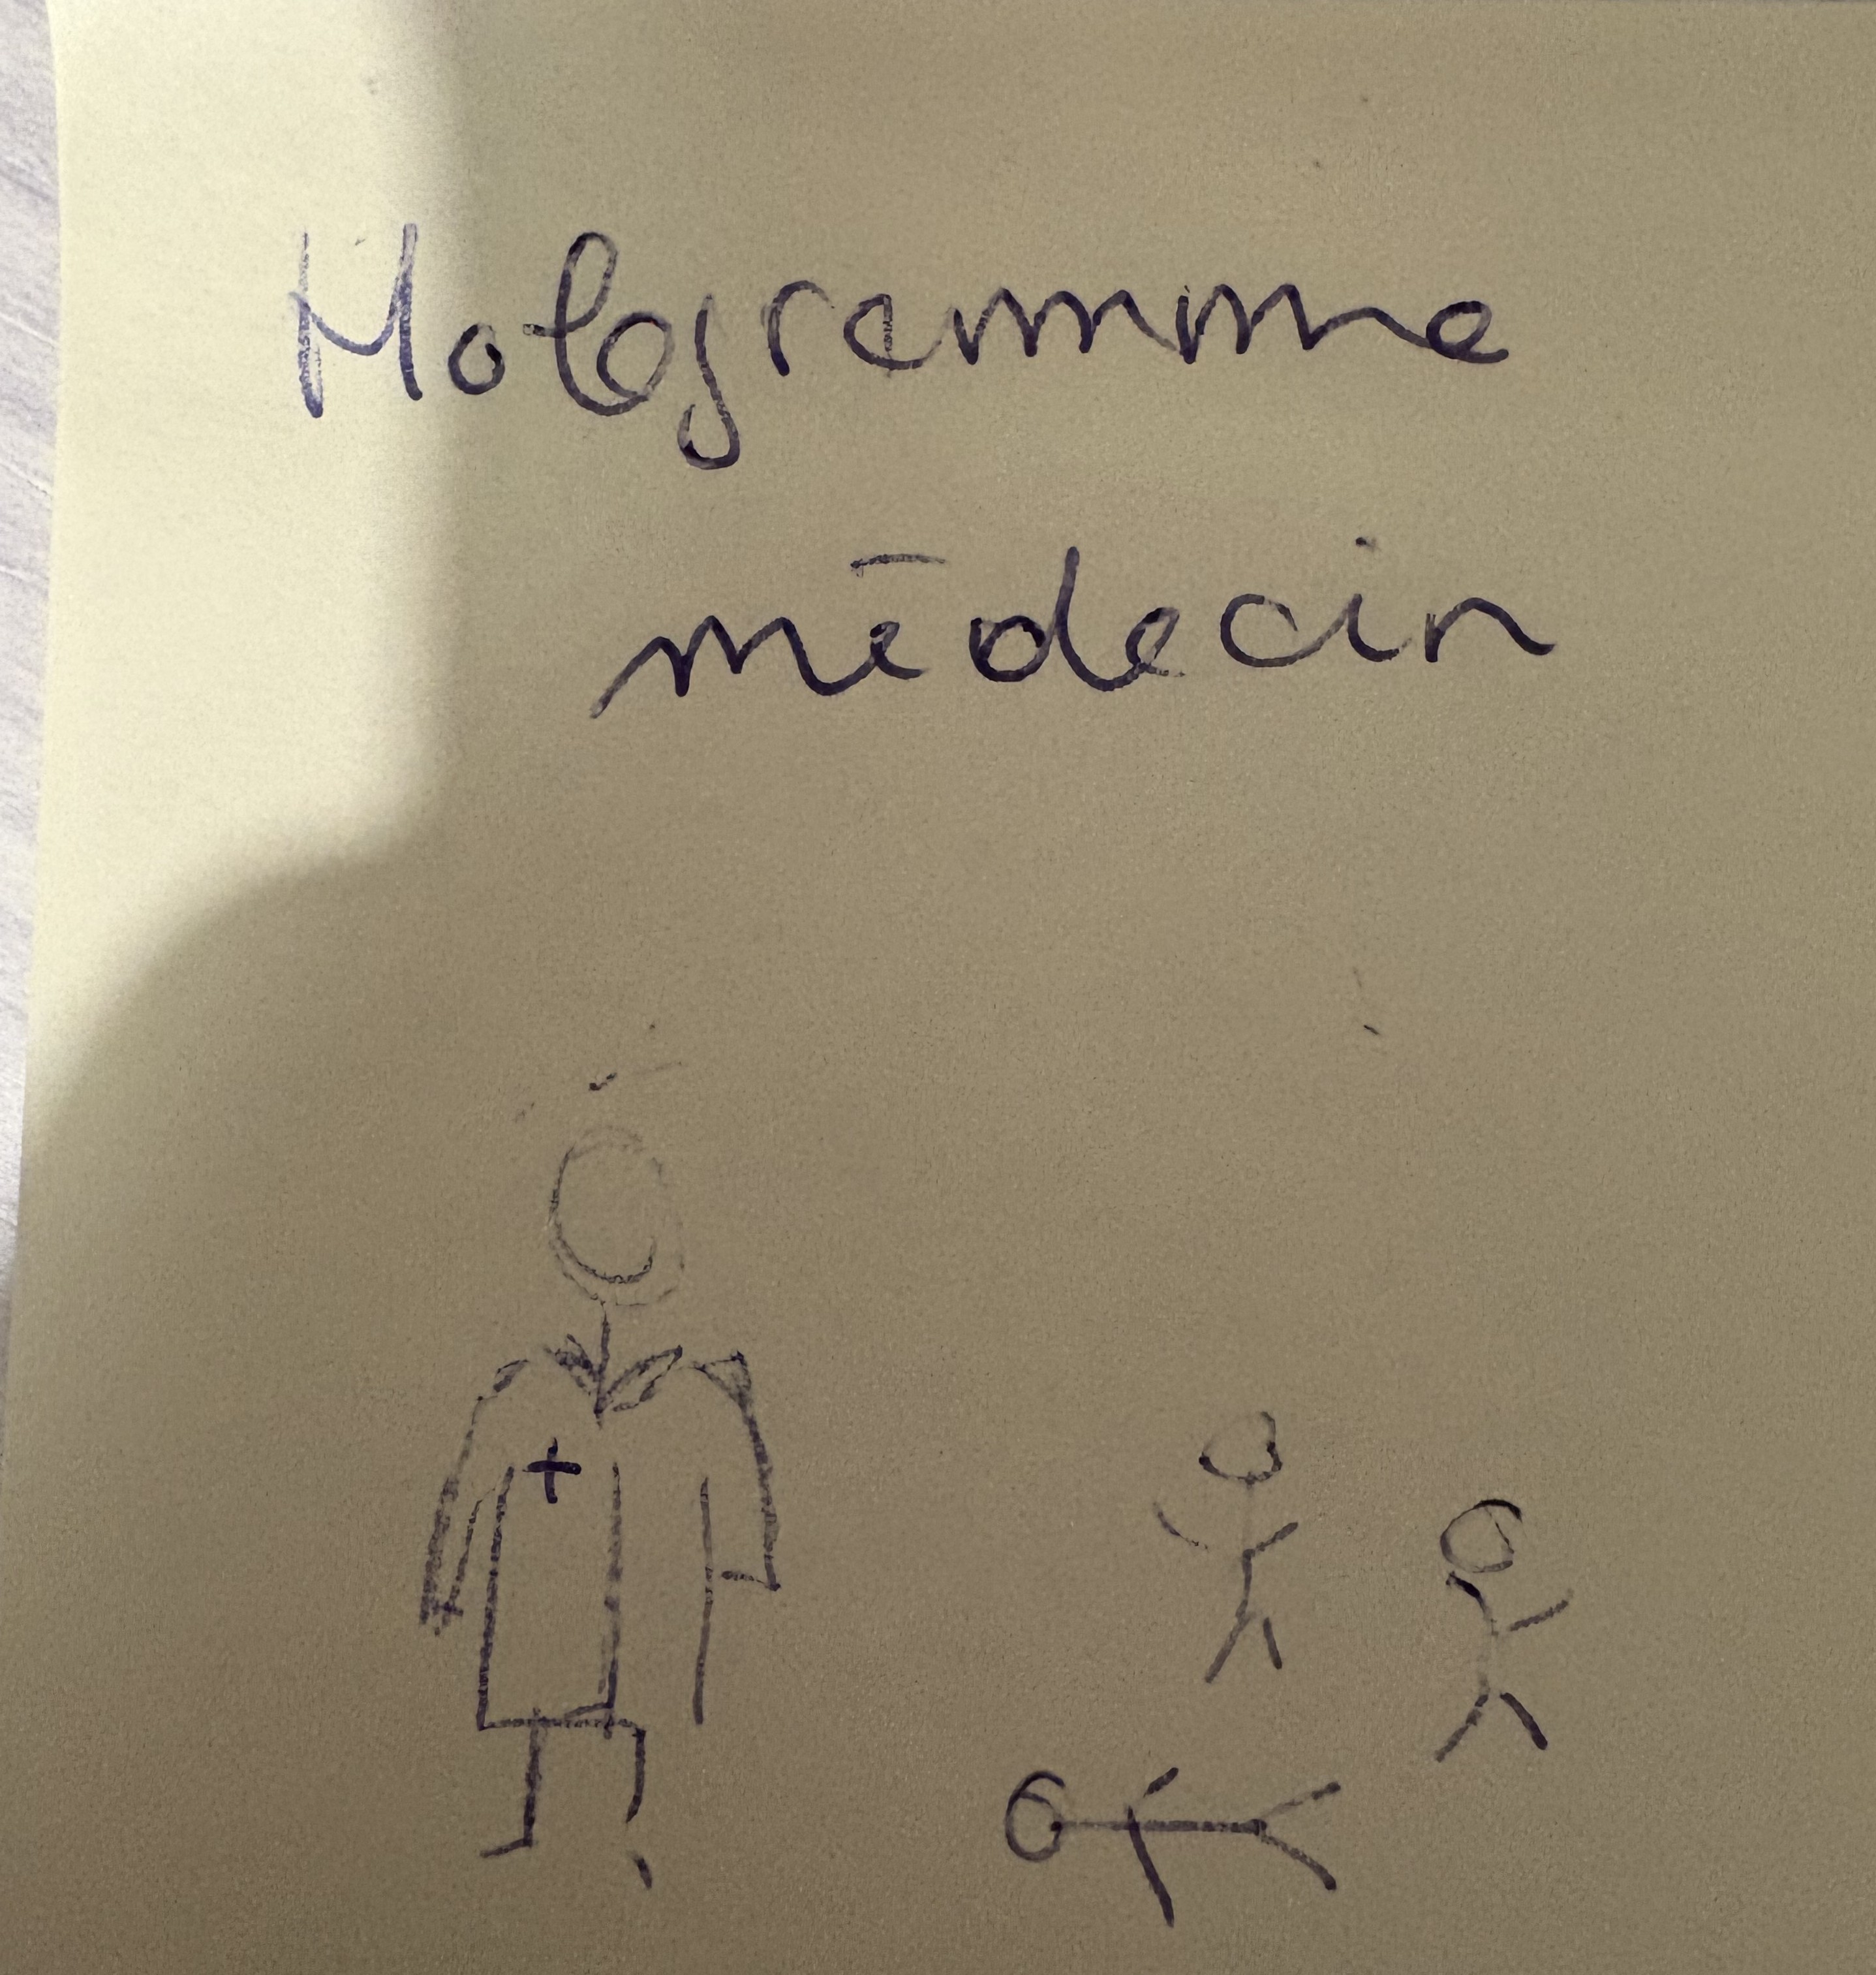 Hologramme
médecin